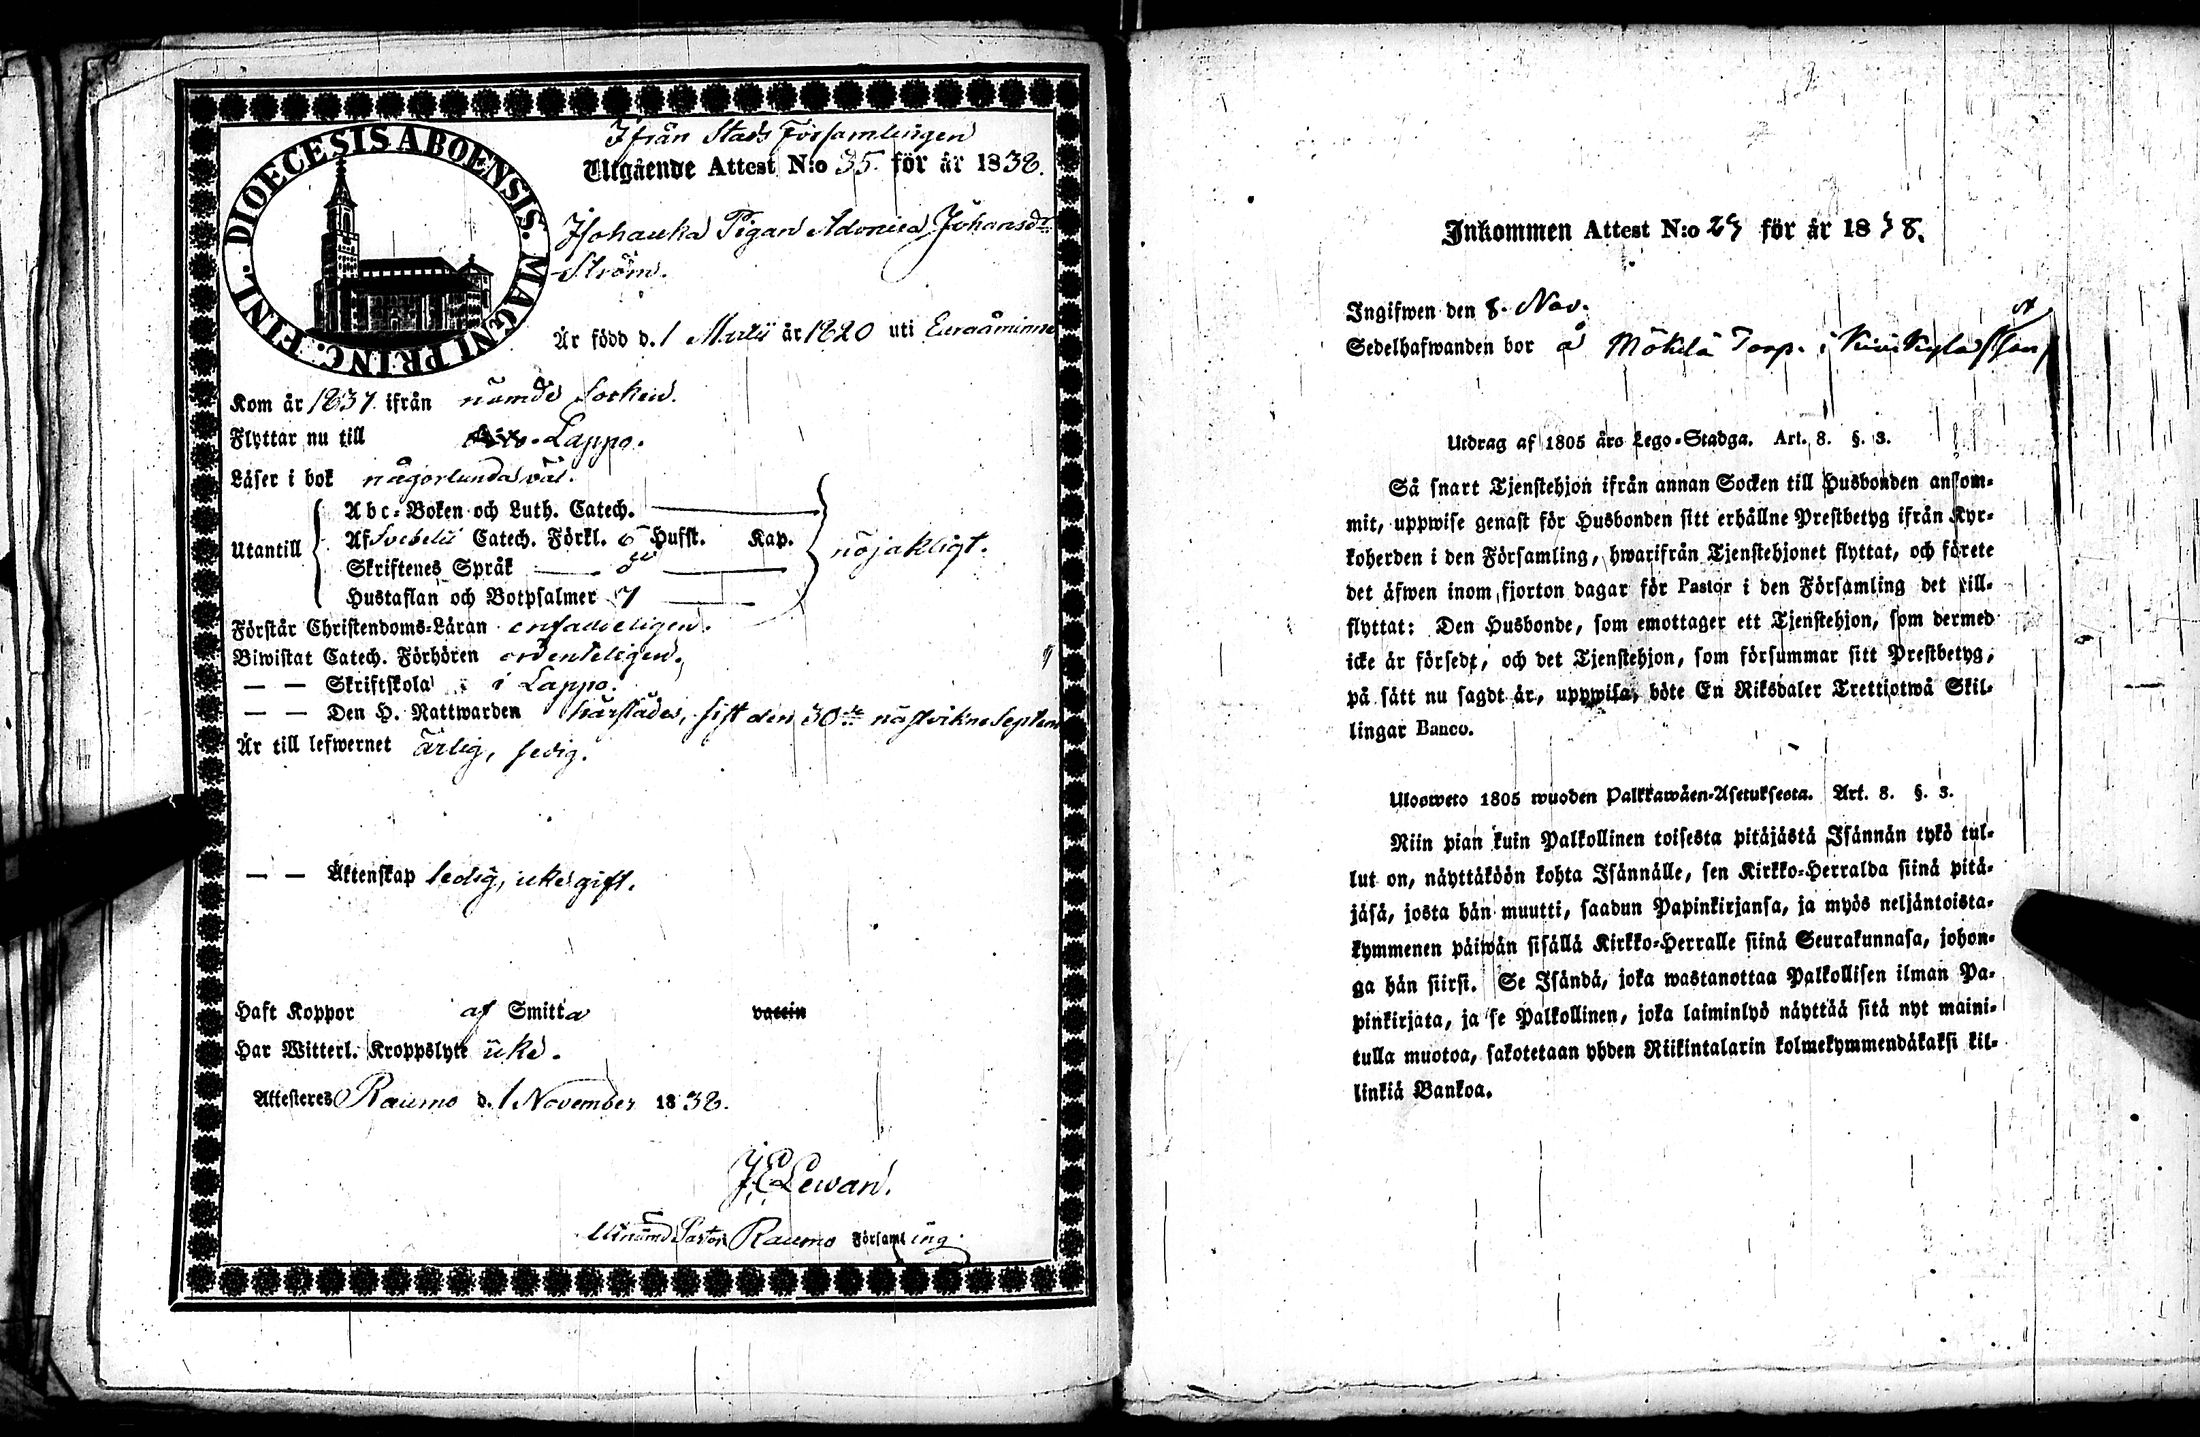 DIOECESIS ABOENSIS. MAGNI PRINC. FINL.
Ifrån Stads Församlingen
Utgående Attest N:o 35. för år 1838.
Pigan Johansdr
Ström.
Är född d. 1 Martii år 1820 uti Euraåminne
Kom år 1837. ifrån nämde Socken.
Flyttar nu till Lappo.
Läser i bok någorlunda väl.
Abc-Boken och Luth. Catech.
Utantill Af Svebelii Catech. Förkl. 6 Hufst. Kap. nöjaktligt.
Skriftenes Språk
Hustaflan och Botpsalmer 7
Förstår Christendoms-Läran enfaldeligen.
Biwistat Catech. Förhören ordenteligen.
— — Skriftskola i Lappo.
— — Den H. Nattwarden härstädes, sist den 30de nästvikne Septem
Är till lefwernet ärlig, sedig.
— — Äktenskap ledig, icke gift.
Haft Koppor af Smitta vaccin
Har Witterl. Kroppslyte icke.
Attesteres Raumo d. 1 November 1838.
J. E. Lewan.
Pastor Raumo Församling.
Inkommen Attest N:o för år 1838.
Ingifwen den 8. Nov.
Sedelhafwanden bor å Mökilä Torp. i
Utdrag af 1805 års Lego-Stadga. Art. 8. §. 3.
Så snart Tjenstehjon ifrån annan Socken till Husbonden ankom-
mit, uppwise genast för Husbonden sitt erhållne Prestbetyg ifrån Kyr-
koherden i den Församling, hwarifrån Tjenstehjonet flyttat, och förete
det äfwen inom fjorton dagar för Pastor i den Församling det till-
flyttat: Den Husbonde, som emottager ett Tjenstehjon, som dermed
icke är försedt, och det Tjenstehjon, som försummar sitt Prestbetyg,
på sätt nu sagdt är, uppwisa, böte En Riksdaler Trettiotwå Skil-
lingar Banco.
Ulosweto 1805 wuoden Palkkawäen-Asetuksesta. Art. 8. §. 3.
Niin pian kuin Palkollinen toisesta pitäjästä Isännän tykö tul-
lut on, näyttäköön kohta Isännälle, sen Kirkko-Herralda siinä pitä-
jäsä, josta hän muutti, saadun Papinkirjansa, ja myös neljäntoista-
kymmenen päiwän sisällä Kirkko-Herralle siinä Seurakunnasa, johon-
ga hän siirsi. Se Isändä, joka wastanottaa Palkollisen ilman Pa-
pinkirjata, ja se Palkollinen, joka laiminlyö näyttää sitä nyt maini-
tulla muotoa, sakotetaan yhden Riikintalarin kolmekymmendäkaksi kil-
linkiä Bankoa.